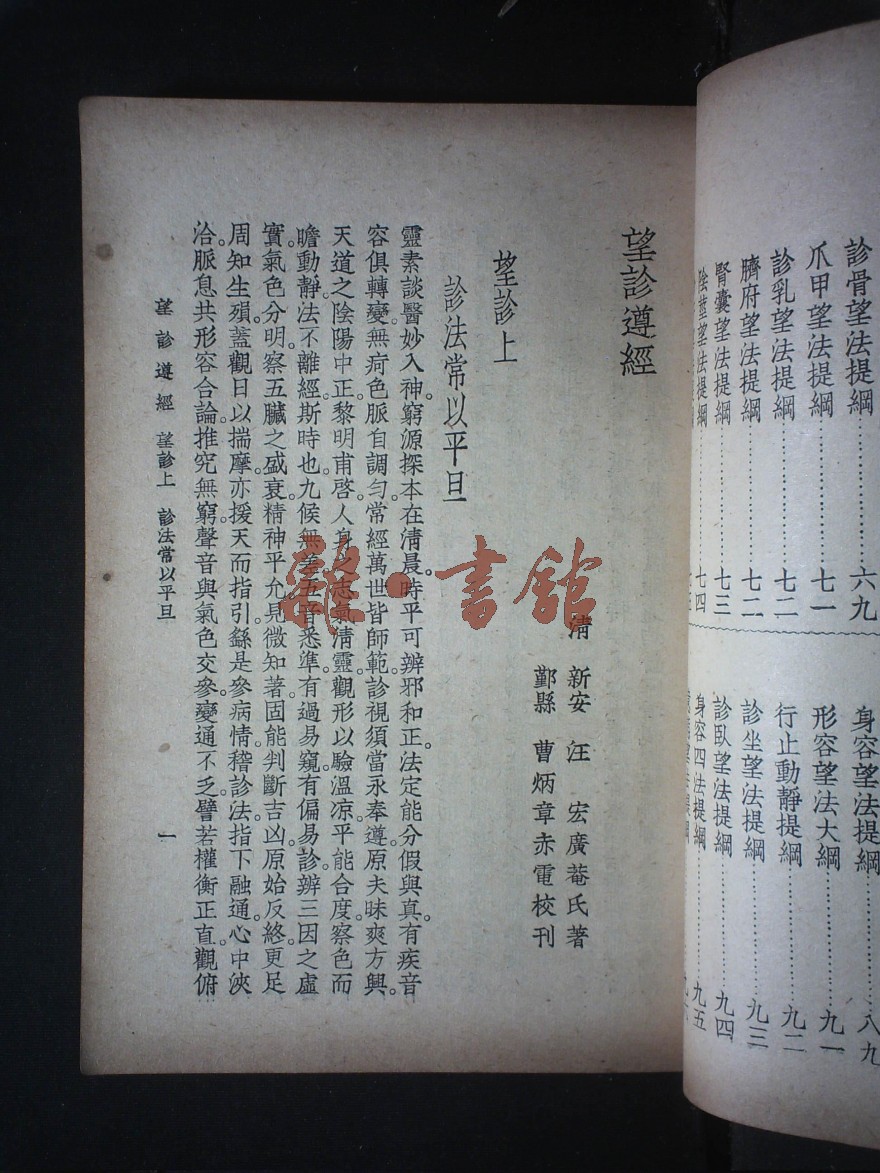 診骨望法提綱……六九
爪甲望法提綱……七一
診乳望法提綱……七二
臍府望法提綱……七二
腎囊望法提綱……七三
陰莖望法提綱……七四
身容望法提綱……八九
形容望法大綱……九一
行止動靜提綱……九二
診坐望法提綱……九三
診臥望法提綱……九四
身容四法提綱……九五
望診遵經
清 新安 汪 宏廣菴氏著
鄞縣 曹炳章赤電校刊
望診上
診法常以平旦
靈素談醫妙入神。窮源探本在清晨。時平可辨邪和正。法定能分假與真。有疾音
容俱轉變。無疴色脈自調勻。常經萬世皆師範。診視須當永奉遵。原夫昧爽方興。
天道之陰陽中正。黎明甫啓。人身之志氣清靈。觀形以驗溫凉。平能合度。察色而
瞻動靜。法不離經。斯時也。九候無差。五音悉準。有過易窺。有偏易診。辨三因之虛
實。氣色分明。察五臟之盛衰。精神平允。見微知著。固能判斷吉凶。原始反終。更足
周知生殞。蓋觀日以揣摩。亦援天而指引。繇是參病情。稽診法。指下融通。心中浹
洽。脈息共形容合論。推究無窮。聲音與氣色交參。變通不乏。譬若權衡正直。觀俯
望診遵經 望診上 診法常以平旦 一
龍·書館